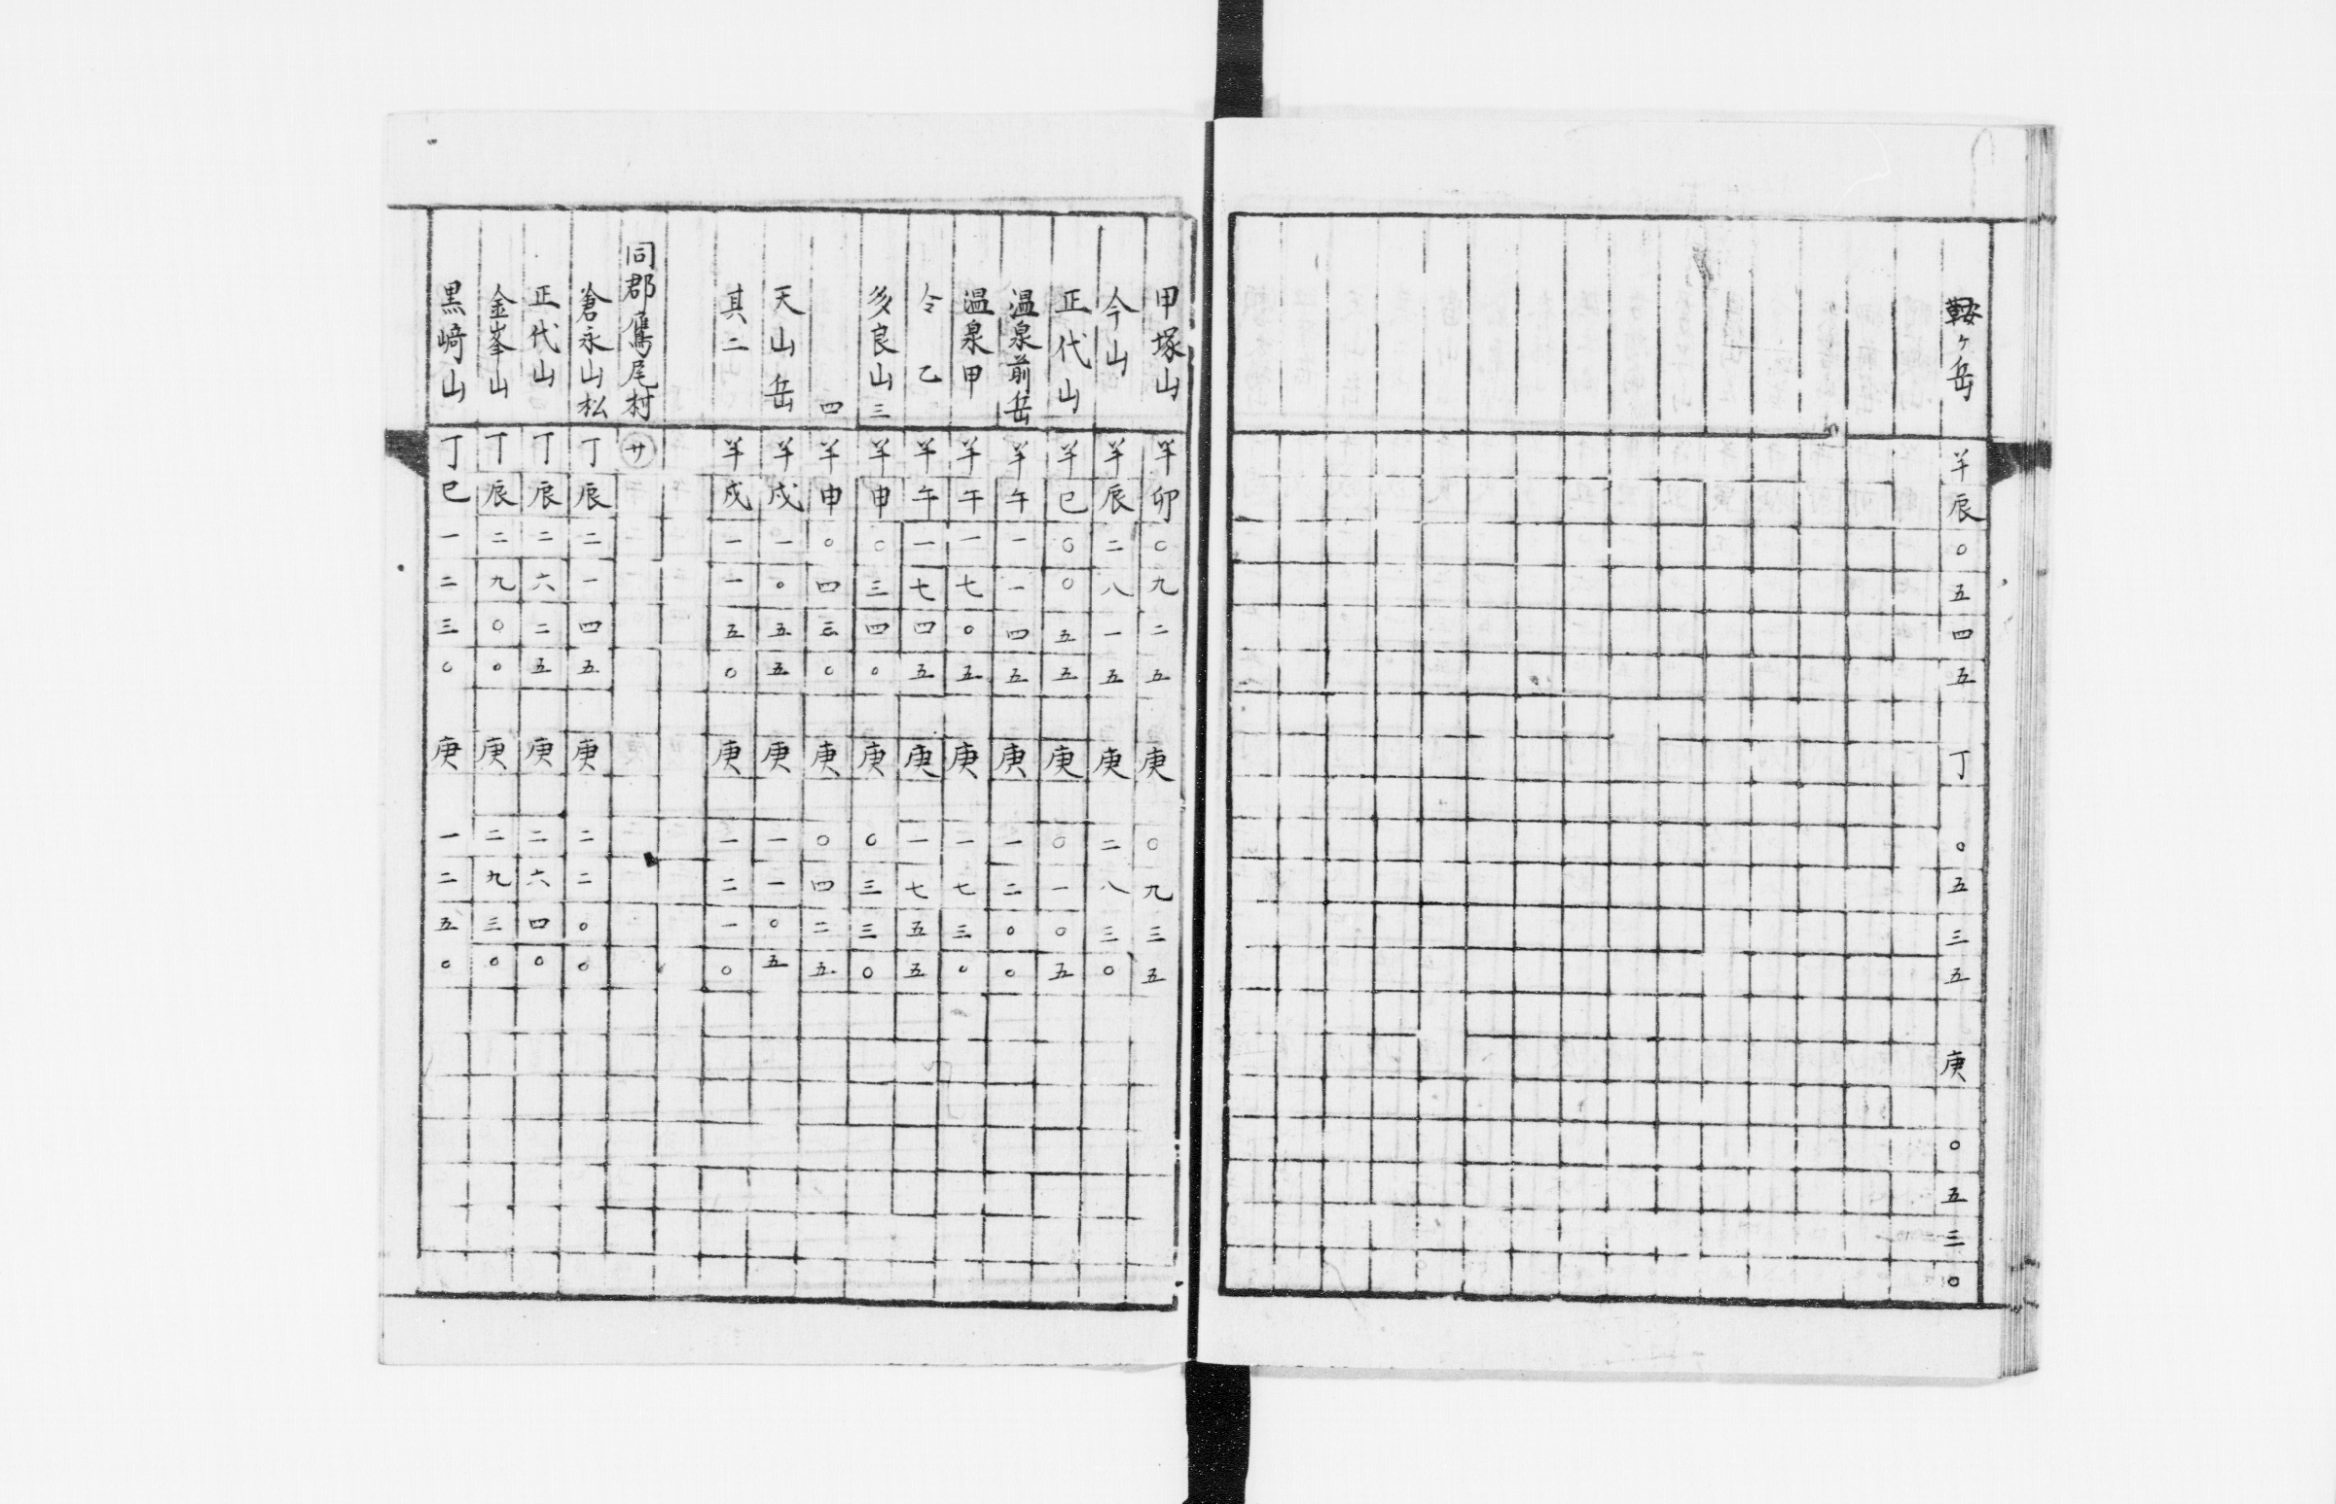 鞍ヶ岳 羊辰〇五四五 丁〇五三五 庚〇五三〇
甲塚山 羊卯〇九二五 庚〇九三五
今山 羊辰二八一五 庚二八三〇
正代山 羊巳〇〇五五 庚〇一〇五
温泉前岳 羊午一一四五 庚一二〇〇
温泉甲 羊午一七〇五 庚一七三〇
仝乙 羊午一七四五 庚一七五五
多良山三 羊申〇三四〇 庚〇三三〇
四 羊申〇四三〇 庚〇四二五
天山岳 羊戌一〇五五 庚一一〇五
其二 羊戌一一五〇 庚一二一〇
同郡鷹尾村 サ
倉永山松 丁辰二一四五 庚二二〇〇
正代山 丁辰二六二五 庚二六四〇
金峯山 丁辰二九〇〇 庚二九三〇
黒﨑山 丁巳一二三〇 庚一二五〇